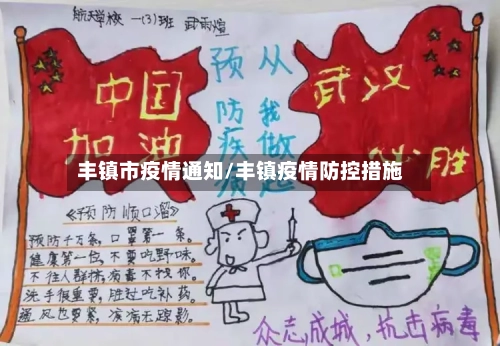 航天学校 一(3)班
中国
加油
预防疾病
从我做起
武汉
必胜
丰镇市疫情通知/丰镇疫情防控措施
《预防顺口溜》
预防千万条,口罩第一条。
健康第一位,不要吃野味。
不往人群挤,病毒不找你。
洗手很重要,胜过吃补药。
通风也要紧,病无踪影。
众志成城,抗击病毒